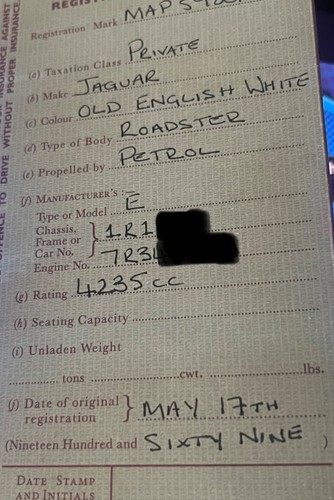 Registration Mark MAP
(a) Taxation Class PRIVATE
(b) Make JAGUAR
(c) Colour OLD ENGLISH WHITE
(d) Type of Body ROADSTER
(e) Propelled by PETROL
(f) MANUFACTURER'S :—
Type or Model E
Chassis,
Frame or
Car No. } 1R1
Engine No. 7R3
(g) Rating 4235cc
(h) Seating Capacity
(i) Unladen Weight
tons cwt. lbs.
(j) Date of original
registration } MAY 17TH
(Nineteen Hundred and SIXTY NINE )
DATE STAMP
AND INITIALS
TO DRIVE WITHOUT PROPER INSURANCE
AGAINST